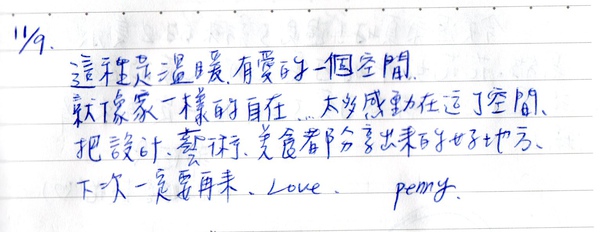 11/9.
這裡是溫暖.有愛的一個空間.
就像家一樣的自在...太多感動在這了空間、
把設計、藝術、美食都分享出來的好地方、
下次一定要再來、Love. penny.